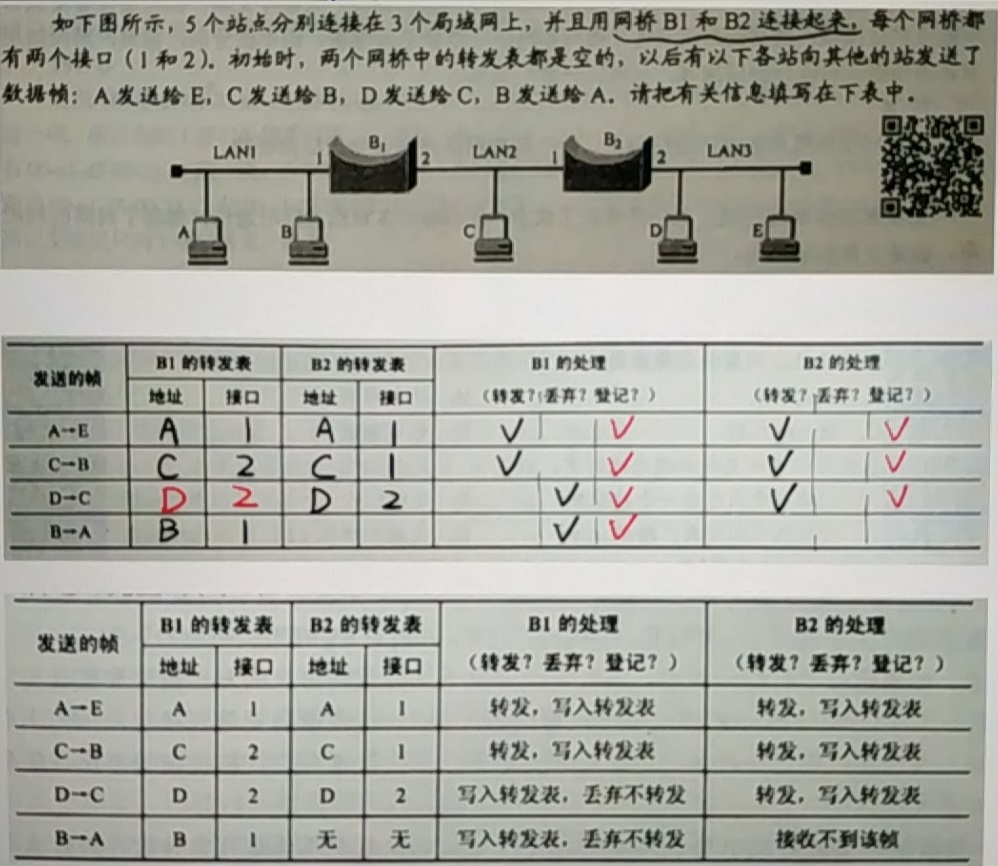 如下图所示，5个站点分别连接在3个局域网上，并且用网桥B1和B2连接起来，每个网桥都
有两个接口（1和2）。初始时，两个网桥中的转发表都是空的，以后有以下各站向其他的站发送了
数据帧：A发送给E，C发送给B，D发送给C，B发送给A。请把有关信息填写在下表中。
LAN1 1 B1 2 LAN2 1 B2 2 LAN3
A B C D E
发送的帧 B1的转发表 B2的转发表 B1的处理 B2的处理
地址 接口 地址 接口 （转发？丢弃？登记？） （转发？丢弃？登记？）
A→E A 1 A 1 ✓ ✓ ✓ ✓
C→B C 2 C 1 ✓ ✓ ✓ ✓
D→C D 2 D 2 ✓ ✓ ✓ ✓
B→A B 1 ✓ ✓
发送的帧 B1的转发表 B2的转发表 B1的处理 B2的处理
地址 接口 地址 接口 （转发？丢弃？登记？） （转发？丢弃？登记？）
A→E A 1 A 1 转发，写入转发表 转发，写入转发表
C→B C 2 C 1 转发，写入转发表 转发，写入转发表
D→C D 2 D 2 写入转发表，丢弃不转发 转发，写入转发表
B→A B 1 无 无 写入转发表，丢弃不转发 接收不到该帧